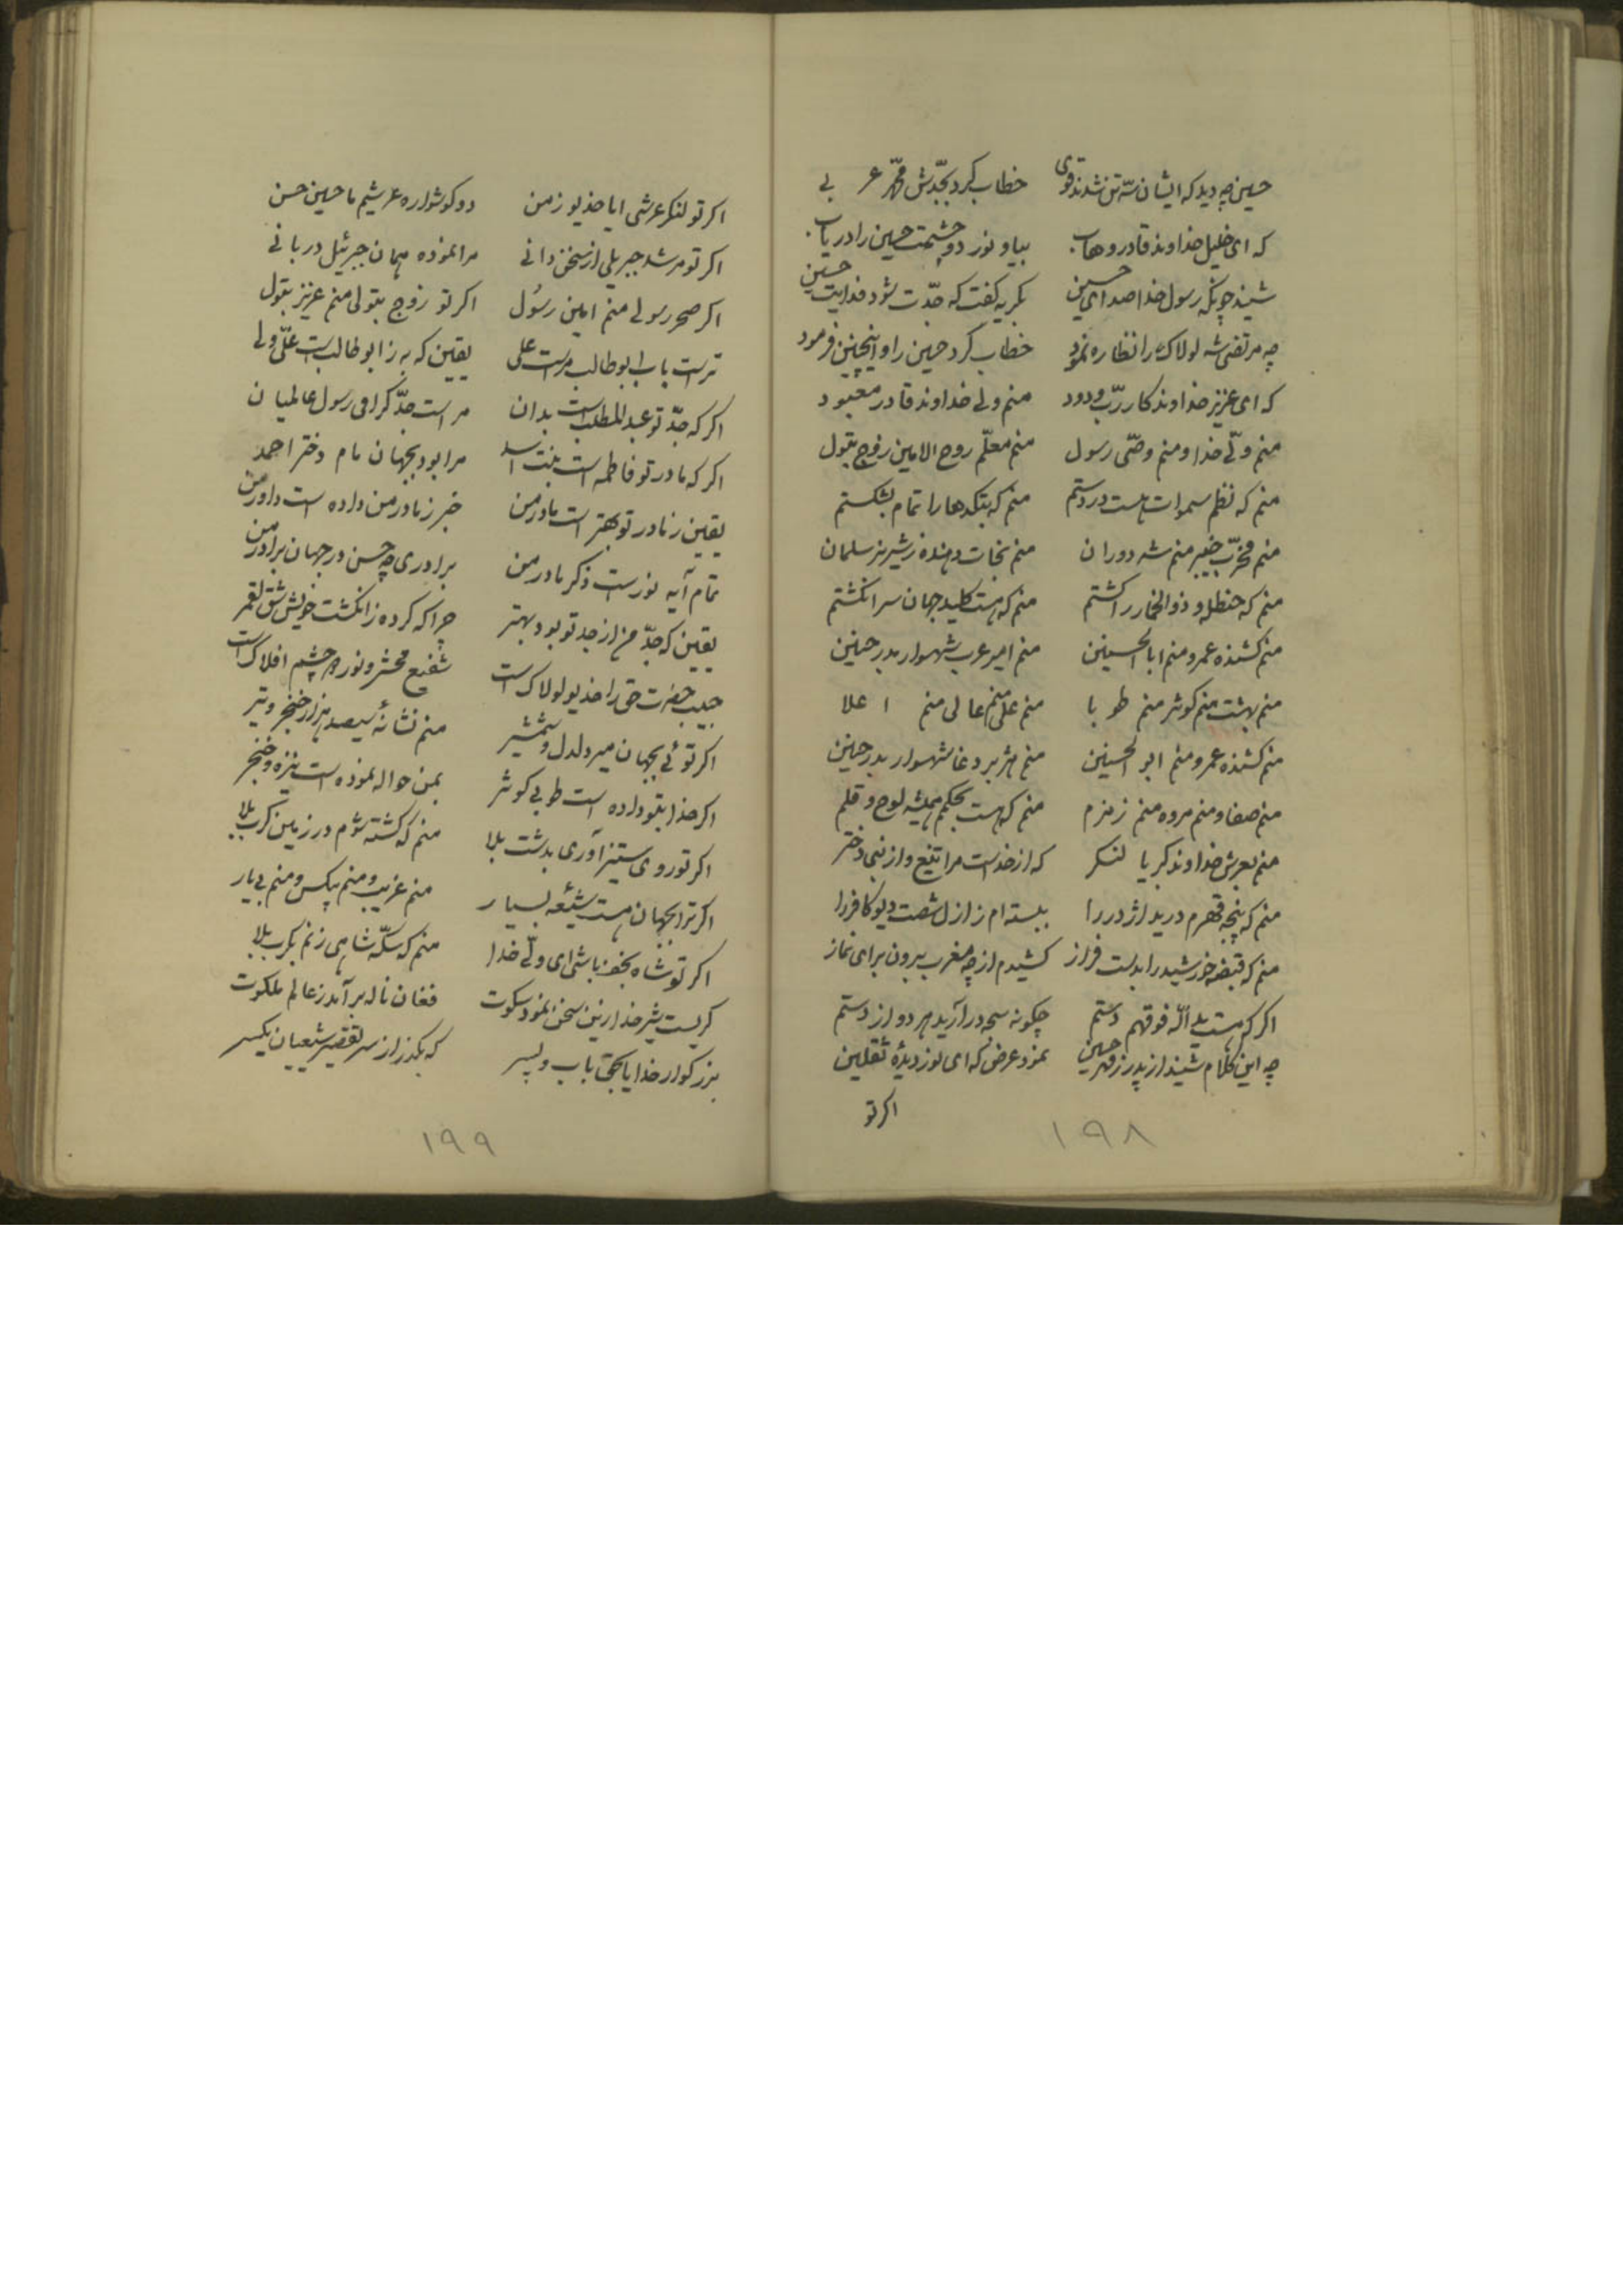 حسین چه دید که ایشان سه تن نشدند قوی خطاب کرد بجدّش محمّد عربی
که ای خلیل خداوند قادر و هاب بیا و نور دو چشمت حسین را دریاب
شنید چونکه رسول خدا صدای حسین بگریه گفت که جدّت شود فدایت حسین
چه مرتضی شه لولاک را نظاره نمود خطاب کرد حسین را و اینچنین فرمود
که ای عزیز خداوند کار ربّ ودود منم ولی خداوند قادر معبود
منم ولّی خدا و منم وصّی رسول منم معلّم روح الامین زوج بتول
منم که نظم سموات هست در دستم منم که بتکدها را تمام بشکستم
منم مخرّب خیبر منم شه دوران منم نجات دهنده ز شیر نر سلمان
منم که حنظله و ذوالخمار را کشتم منم که هست کلید جهان سر انکشتم
منم کشنده عمرو منم ابا الحسین منم امیر عرب شهسوار بدر حنین
منم بهشت منم کوثر منم طوبا منم علی منم عالی منم اعلا
منم کشنده عمرو منم ابو الحسنین منم هژبر دغا شهسوار بدر حنین
منم صفا و منم مروه منم زمزم منم که هست بحکمم همیشه لوح و قلم
منم بعرش خداوند کبریا لنکر که از خداست مرا تیغ و از نبی دختر
منم که پنجه قهرم درید اژدر را ببسته ام ز ازل شصت دیو کافر را
منم که قبضه خورشید را بدست فراز کشیدم از چه مغرب برون برای نماز
اکر که هست ید الله فوقهم دستم چکونه سجه در آرید هر دو از دستم
چه این کلام شنید از پدر ز قهر حسین نمود عرض که ای نور دیدهٔ ثقلین
اکر تو
۱۹۸
اکر تو لنکر عرشی ایا خدیو زمن دو کوشواره عرشیم ما حسین حسن
اکر تو مرشد جبریلی از سخن دانی مرا نموده همان جبرئیل دربانی
اکر صحر رسولی منم امین رسُول اکر تو زوج بتولی منم عزیز بتول
تراست باب ابوطالب مراست علی یقین که به ز ابوطالب است علّی ولی
اکر که جدّ تو عبدالمطلب است بدان مراست جدّ کرامی رسول عالمیان
اکر که مادر تو فاطمه است بنت اسد مرا بود بجهان مام دختر احمد
یقین ز مادر تو بهتر است مادر من خبر ز مادر من داده است داور من
تمام آیه نور است ذکر مادر من برادری چه حسن در جهان برادر من
یقین که جدّ من از جد تو بود بهتر چرا که کرده ز انکشت خویش شق القمر
حبیب حضرت حق را خدیو لولاک است شفیع محشر و نور دو چشم افلاک است
اکر توئی بجهان میر دلدل و شمشیر منم نشانهٔ سیصد هزار خنجر و تیر
اکر خدا بتو داده است طوبی کوثر بمن حواله نموده است نیزه و خنجر
اکر تو روی ستیز آوری بدشت بلا منم که کشته شوم در زمین کرب بلا
اکر ترا بجهان هست شیعهٔ بسیار منم غریب و منم بیکس و منم بی یار
اکر تو شاه نجف باشی ای ولّی خدا منم که سکّه شاهی زنم بکرب بلا
کریست شیر خدا زین سخن نمود سکوت فغان ناله بر آمد ز عالم ملکوت
بزرکوار خدایا بحق باب و پسر که بکذر از سر تقصیر شیعیان یکسر
۱۹۹